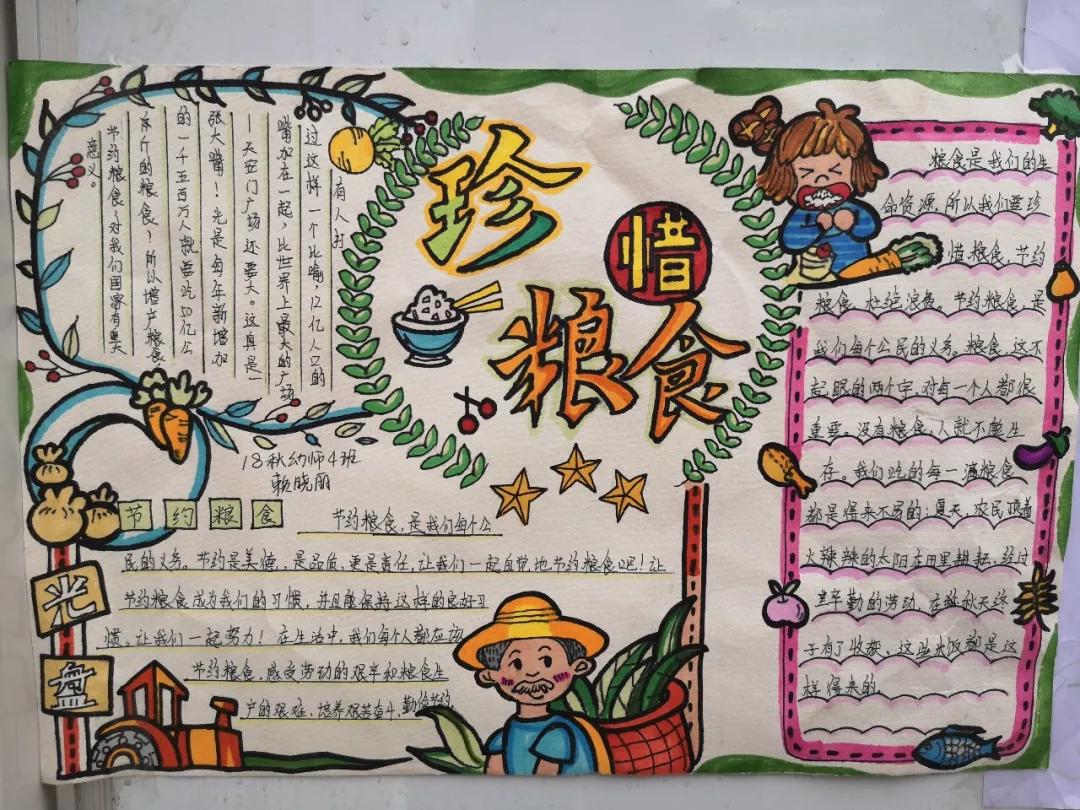 珍
惜
粮食
有人打
过这样一个比喻,12亿人口的
嘴加在一起,比世界上最大的广场
—天安门广场还要大。这真是一
张大嘴!光是每年新增加
的一千五百万人就要吃50亿公
斤的粮食!所以增产粮食
节约粮食,对我们国家有重大
意义。
18秋幼师4班
赖晓
节约粮食
节约粮食,是我们每个公
民的义务。节约是美德,是品质,更是责任,让我们一起自觉地节约粮食吧!让
节约粮食成为我们的习惯,并且能保持这样的良好习
惯。让我们一起努力!在生活中,我们每个人都应该
节约粮食,感受劳动的艰辛和粮食生
产的艰难,培养艰苦奋斗,勤俭节约
光
盘
粮食是我们的生
命资源,所以我们要珍
惜粮食,节约
粮食,杜绝浪费。节约粮食,是
我们每个公民的义务。粮食,这不
起眼的两个字,对每一个人都很
重要。没有粮食,人就不能生
存。我们吃的每一滴粮食
都是得来不易的;夏天,农民顶着
火辣辣的太阳在田里耕耘,经过
辛勤的劳动,在秋天终
于有了收获,这些米饭都是这
样得来的。